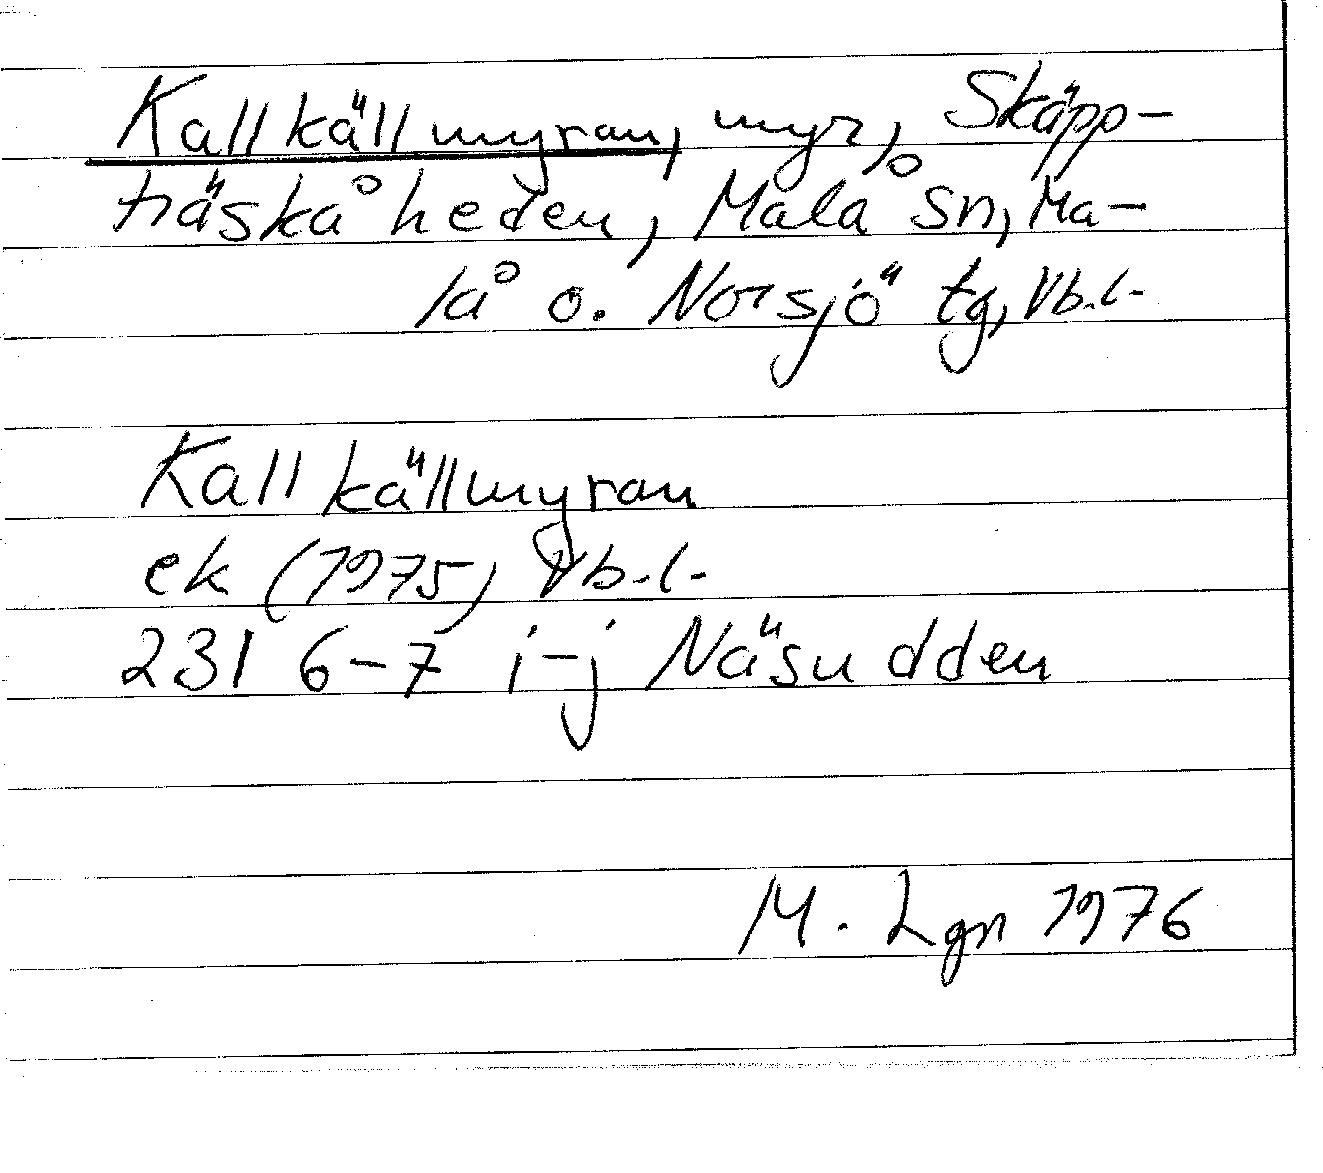 Kallkällmyran, myr, Skäpp-
träskåheden, Malå sn, Ma-
lå o. Norsjö tg, Vb.l.
Kallkällmyran
ek (1975) Vb.l.
23I 6-7 i-j Näsudden
M. Lgn 1976